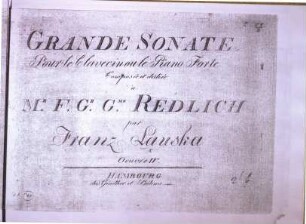 GRANDE SONATE
Pour le Clavecin ou le Piano Forte
Composée et dediée
à
Mr. F. Gs. Gme REDLICH
par
Franz Lauska
Oeuvre
HAMBOURG
chez Günther et Böhme